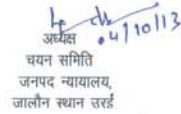 04/10/13
अध्यक्ष
चयन समिति
जनपद न्यायालय,
जालौन स्थान उरई